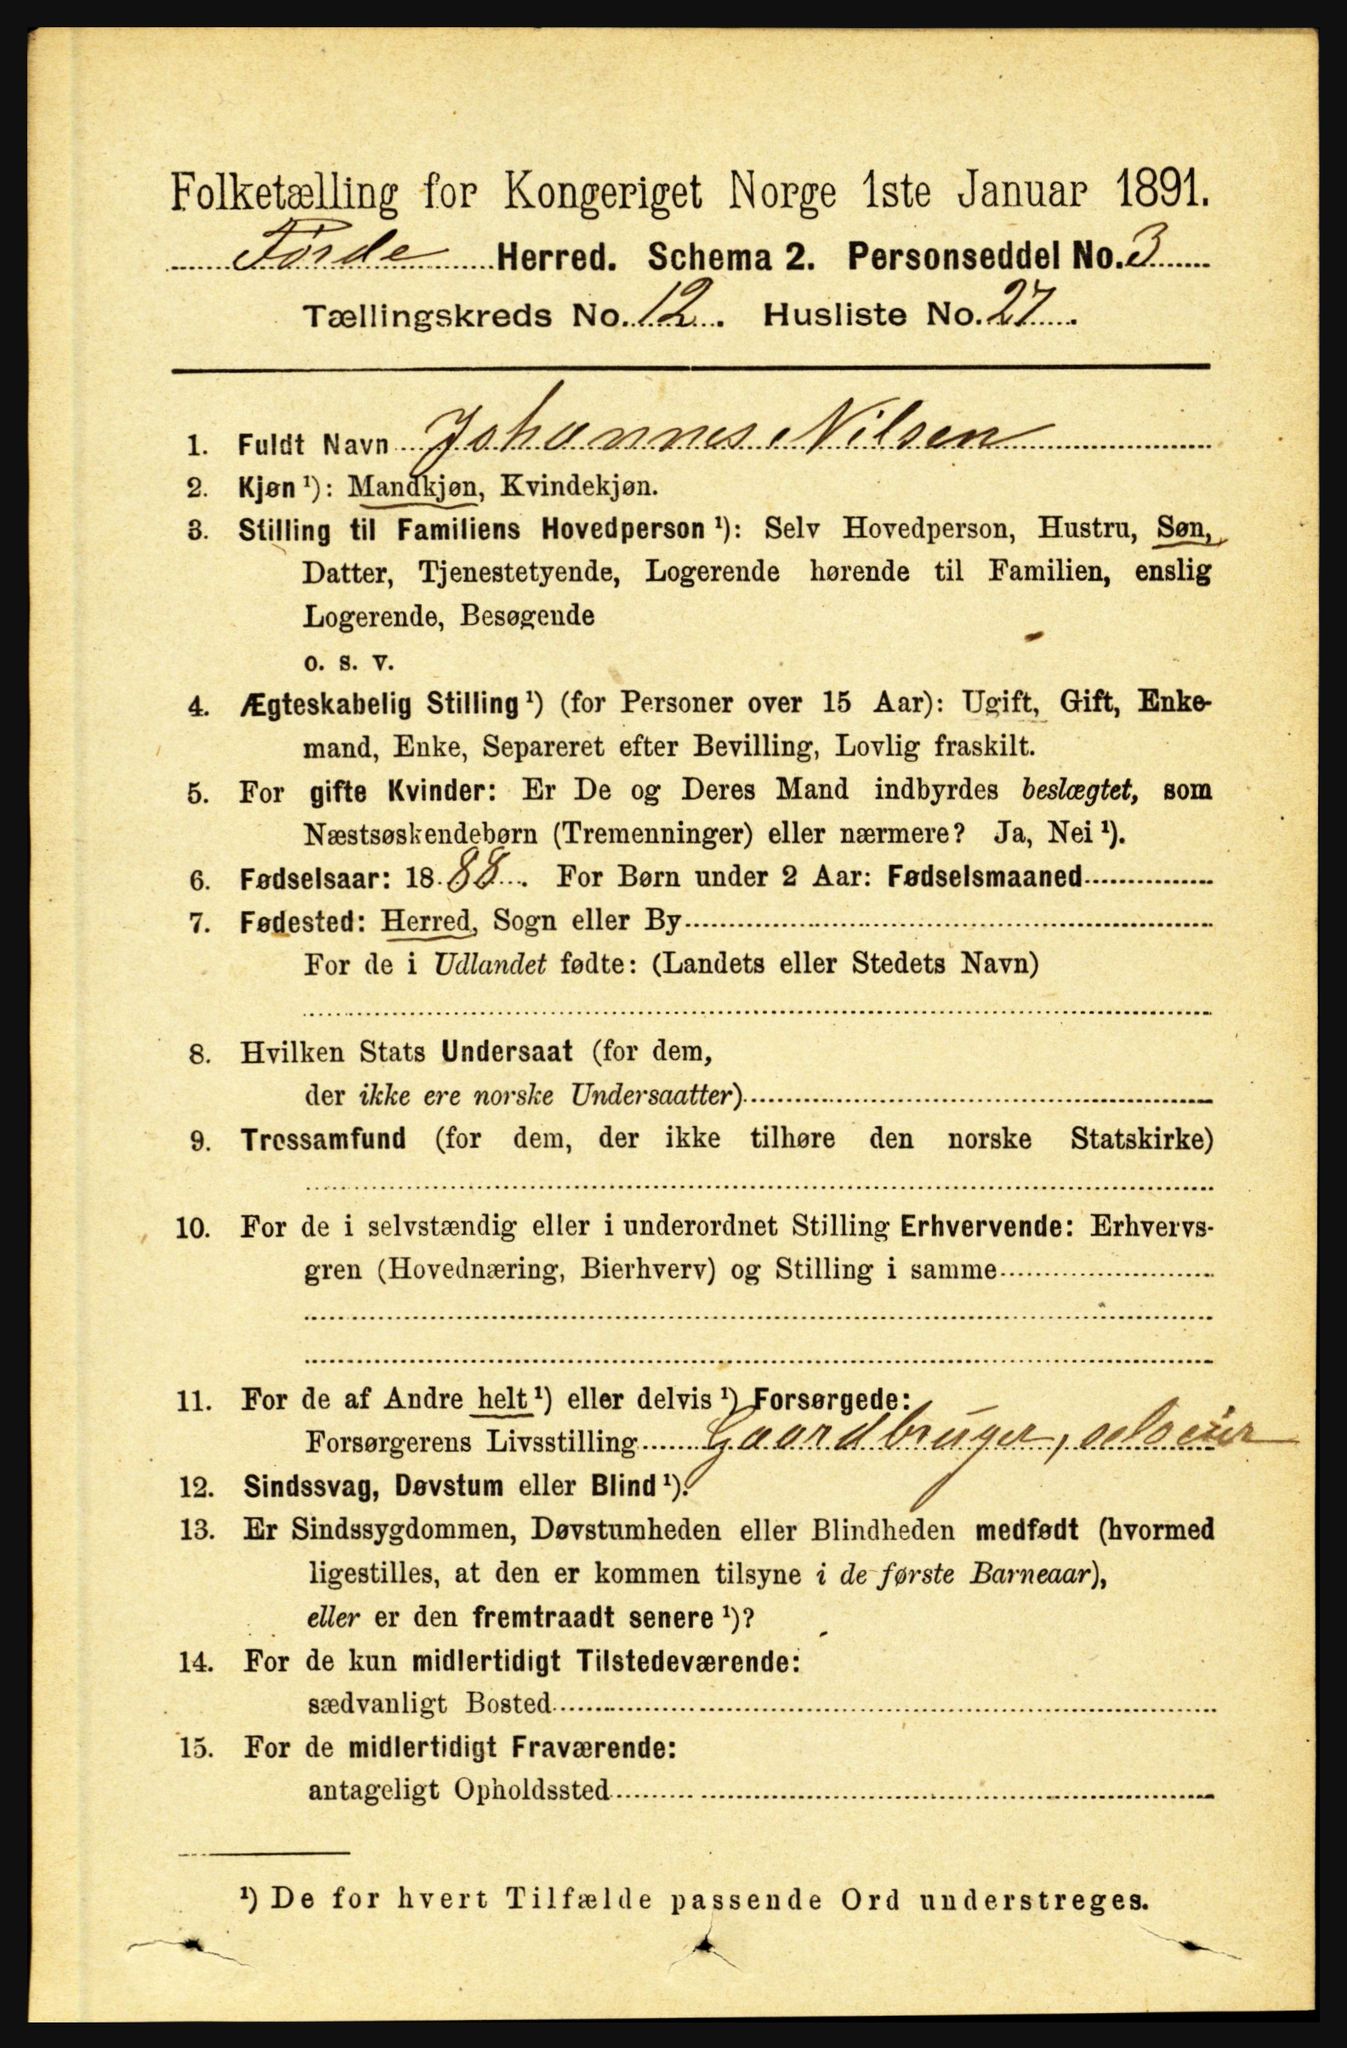 Folketælling for Kongeriget Norge 1ste Januar 1891.
Førde Herred. Schema 2. Personseddel No. 3
Tællingskreds No. 12. Husliste No. 27.
1. Fuldt Navn Johannes Nilsen
2. Kjøn ¹): Mandkjøn, Kvindekjøn.
3. Stilling til Familiens Hovedperson ¹): Selv Hovedperson, Hustru, Søn,
Datter, Tjenestetyende, Logerende hørende til Familien, enslig
Logerende, Besøgende
o. s. v.
4. Ægteskabelig Stilling ¹) (for Personer over 15 Aar): Ugift, Gift, Enke-
mand, Enke, Separeret efter Bevilling, Lovlig fraskilt.
5. For gifte Kvinder: Er De og Deres Mand indbyrdes beslægtet, som
Næstsøskendebørn (Tremenninger) eller nærmere? Ja, Nei ¹).
6. Fødselsaar: 1888. For Børn under 2 Aar: Fødselsmaaned
7. Fødested: Herred, Sogn eller By
For de i Udlandet fødte: (Landets eller Stedets Navn)
8. Hvilken Stats Undersaat (for dem,
der ikke ere norske Undersaatter)
9. Trossamfund (for dem, der ikke tilhøre den norske Statskirke)
10. For de i selvstændig eller i underordnet Stilling Erhvervende: Erhvervs-
gren (Hovednæring, Bierhverv) og Stilling i samme
11. For de af Andre helt ¹) eller delvis ¹) Forsørgede:
Forsørgerens Livsstilling Gaardbruger, selveier
12. Sindssvag, Døvstum eller Blind ¹).
13. Er Sindssygdommen, Døvstumheden eller Blindheden medfødt (hvormed
ligestilles, at den er kommen tilsyne i de første Barneaar),
eller er den fremtraadt senere ¹)?
14. For de kun midlertidigt Tilstedeværende:
sædvanligt Bosted
15. For de midlertidigt Fraværende:
antageligt Opholdssted
¹) De for hvert Tilfælde passende Ord understreges.